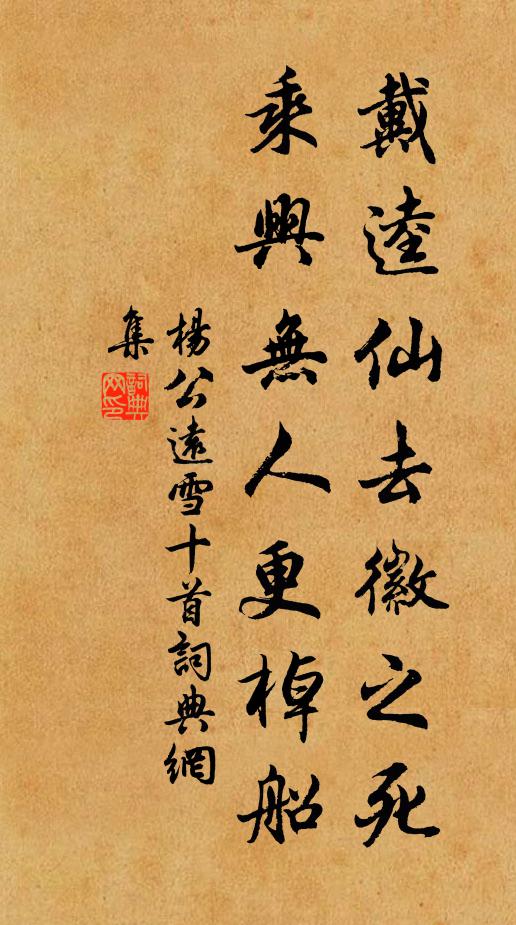 戴逵仙去徽之死
乘興無人更棹船
楊公遠雪十首詞典網
集
詞典網印